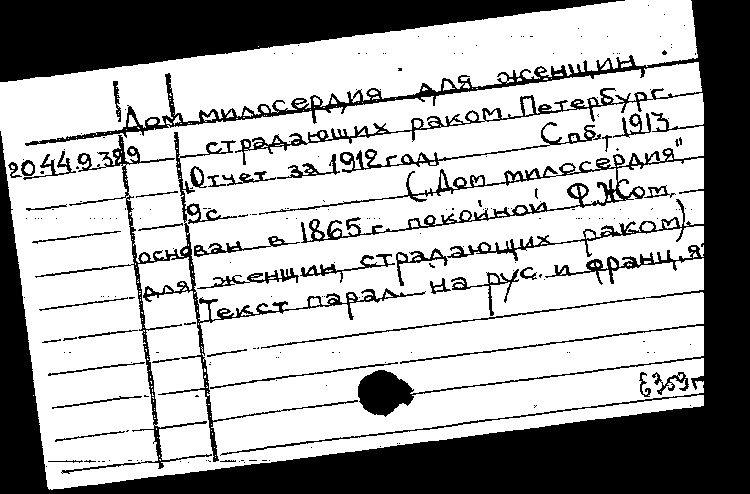 Дом милосердия для женщин,
страдающих раком. Петербург.
20.44.9.389
Отчет за 1912 год. Спб., 1913.
9с. („Дом милосердия",
основан в 1865 г. покойной Ф.Жом.
для женщин, страдающих раком).
Текст парал. на рус. и франц. я